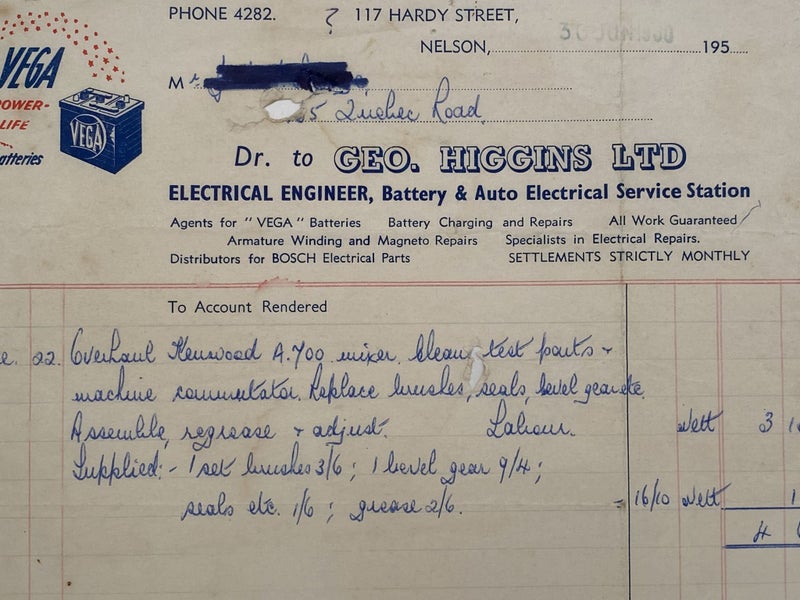 PHONE 4282. ? 117 HARDY STREET,
NELSON, 195
VEGA
POWER-
LIFE
atteries
VEGA
M
5 Quebec Road
Dr. to GEO. HIGGINS LTD
ELECTRICAL ENGINEER, Battery & Auto Electrical Service Station
Agents for "VEGA" Batteries Battery Charging and Repairs All Work Guaranteed
Armature Winding and Magneto Repairs Specialists in Electrical Repairs.
Distributors for BOSCH Electrical Parts SETTLEMENTS STRICTLY MONTHLY
To Account Rendered
e. 22. Overhaul Kenwood A.700 mixer. Clean, test parts +
machine commutator. Replace brushes, seals, bevel gear etc.
Assemble, regrease + adjust. Labour. Nett 3 1
Supplied:- 1 set brushes 3/6; 1 bevel gear 9/4;
seals etc. 1/6; grease 2/6. = 16/10 Nett 1
4